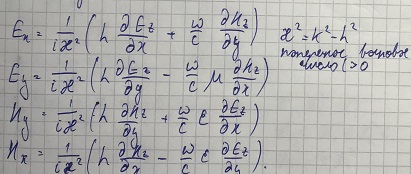 Eₓ = 1/(iϰ²) (h ∂E_z/∂x + ω/c ∂H_z/∂y)
ϰ² = k² - h²
поперечное волновое
число (>0
E_y = 1/(iϰ²) (h ∂E_z/∂y - ω/c μ ∂H_z/∂x)
H_y = 1/(iϰ²) (h ∂H_z/∂y + ω/c ε ∂E_z/∂x)
Hₓ = 1/(iϰ²) (h ∂H_z/∂x - ω/c ε ∂E_z/∂y).